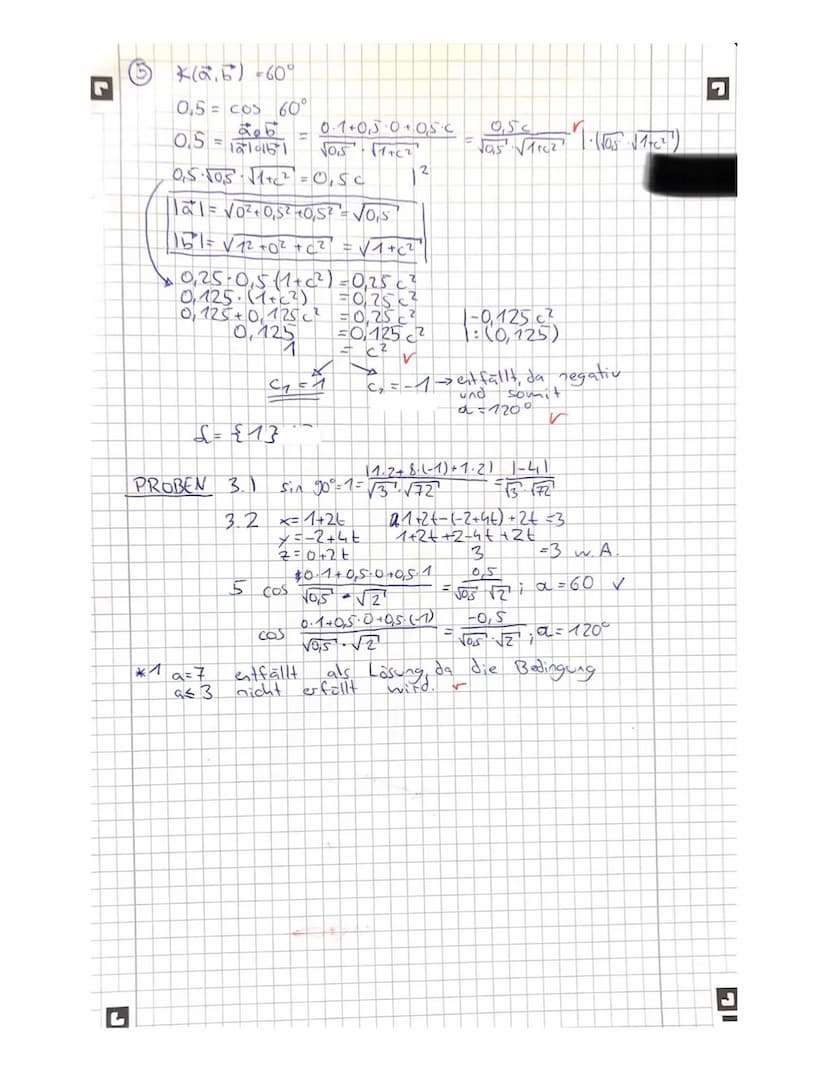 ⑤ ∡(a⃗,b⃗) = 60°
0,5 = cos 60°
0,5 = (a⃗∘b⃗)/(|a⃗|∘|b⃗|) = (0·1+0,5·0+0,5·c)/(√0,5 · √(1+c²)) = 0,5c/(√0,5 · √(1+c²)) | · (√0,5 · √(1+c²))
0,5·√0,5 · √(1+c²) = 0,5c |²
|a⃗| = √(0²+0,5²+0,5²) = √0,5
|b⃗| = √(1²+0²+c²) = √(1+c²)
0,25·0,5·(1+c²) = 0,25c²
0,125·(1+c²) = 0,25c²
0,125+0,125c² = 0,25c² |-0,125c²
0,125 = 0,125c² |:(0,125)
1 = c²
c₁ = 1 c₂ = -1 → entfällt, da negativ
und somit
α = 120°
L = {1}
PROBEN 3.1 sin 90° = 1 = |1·2+8·(-1)+1·2|/(√3 · √72) = |-4|/(√3 · √72)
3.2 x = 1+2t 1+2t-(-2+4t)+2t = 3
y = -2+4t 1+2t+2-4t+2t
z = 0+2t 3 = 3 w.A.
5 cos (0·1+0,5·0+0,5·1)/(√0,5 · √2) = 0,5/(√0,5 · √2) ; α = 60 ✓
cos (0·1+0,5·0+0,5·(-1))/(√0,5 · √2) = -0,5/(√0,5 · √2) ; α = 120°
*1 a=7 entfällt als Lösung, da die Bedingung
a≤3 nicht erfüllt wird.